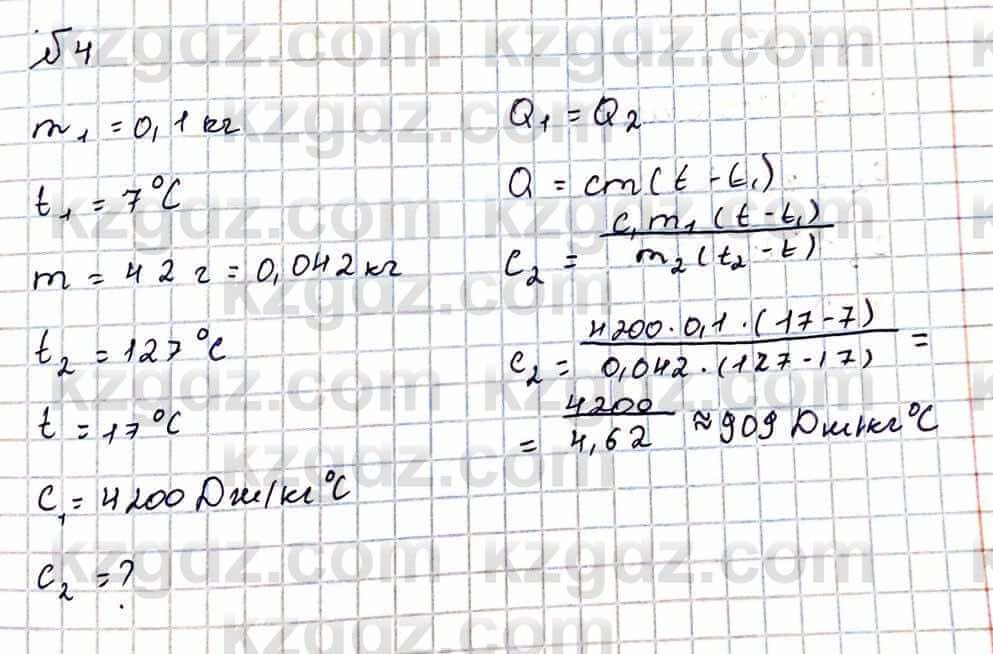 № 4
m₁ = 0,1 кг
t₁ = 7°C
m = 42 г = 0,042 кг
t₂ = 127°C
t = 17°C
c₁ = 4200 Дж/кг°C
c₂ = ?
Q₁ = Q₂
Q = cm(t - t₁)
c₂ = c₁m₁(t - t₁) / m₂(t₂ - t)
c₂ = 4200 · 0,1 · (17 - 7) / 0,042 · (127 - 17) =
= 4200 / 4,62 ≈ 909 Дж/кг°C
kzgdz.com